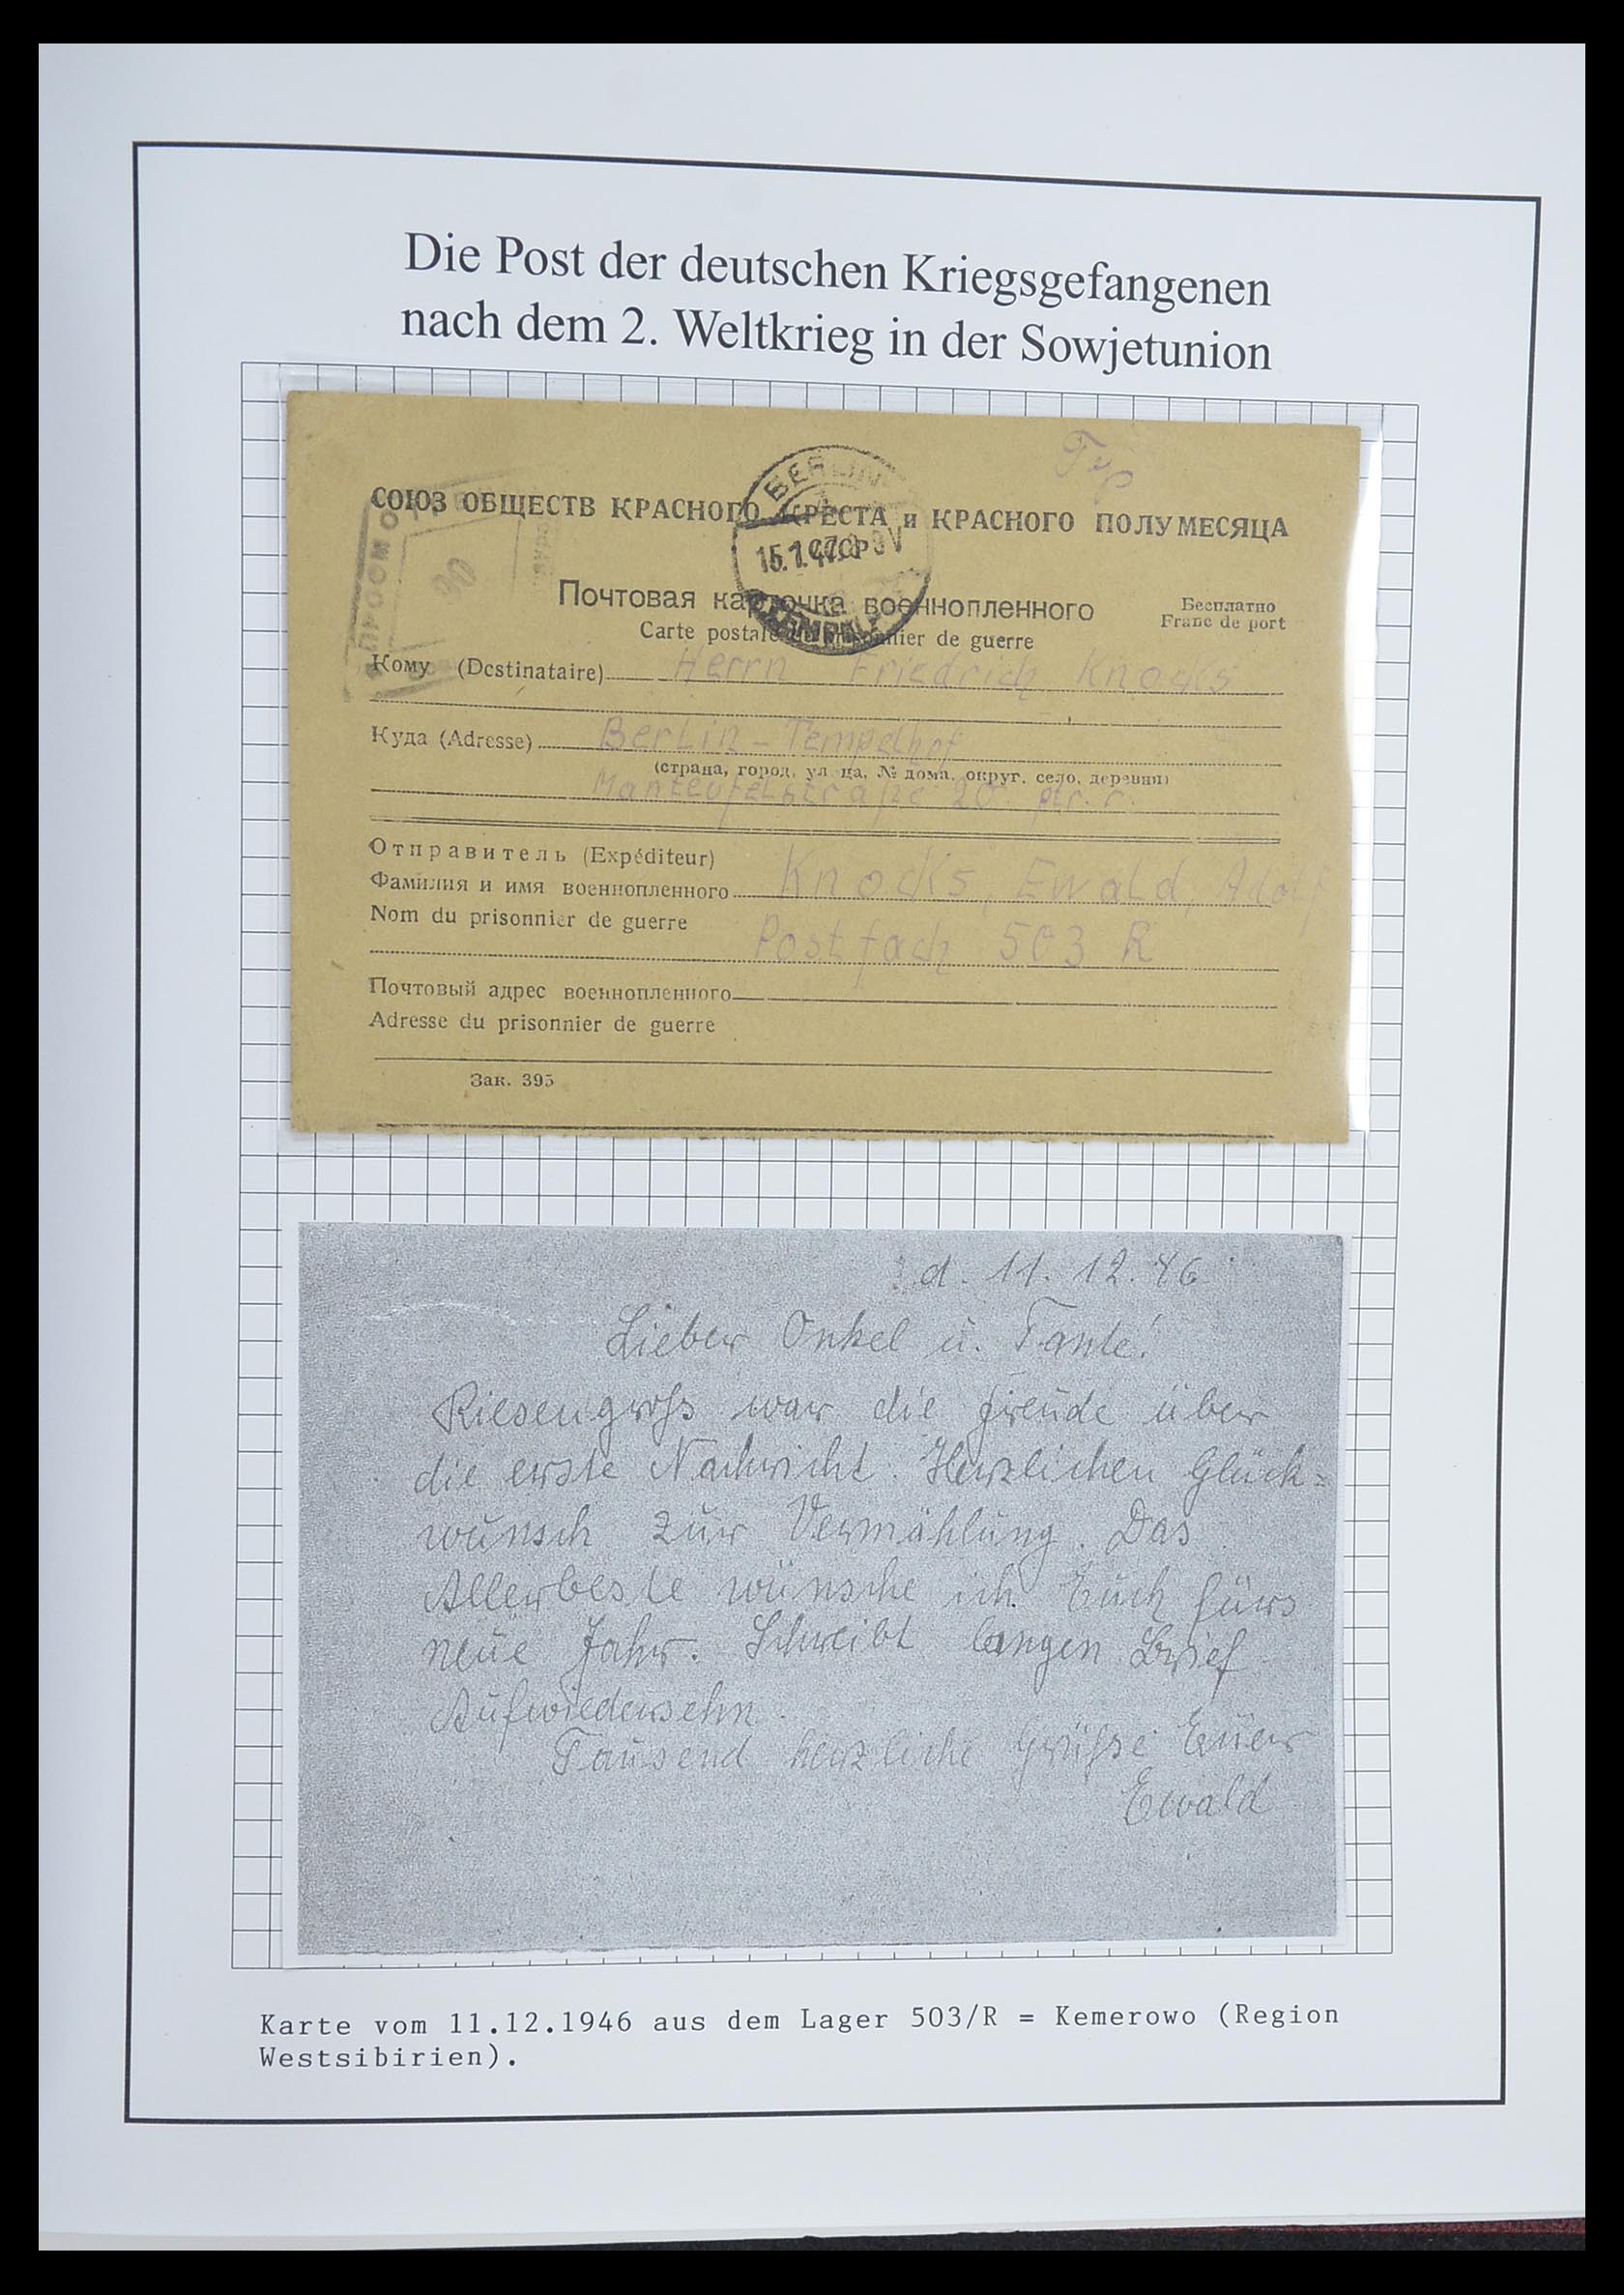 Die Post der deutschen Kriegsgefangenen
nach dem 2. Weltkrieg in der Sowjetunion
Тур
СОЮЗ ОБЩЕСТВ КРАСНОГО КРЕСТА и КРАСНОГО ПОЛУМЕСЯЦА
СССР
BERLIN
15.1.47
TEMPELH
Почтовая карточка военнопленного
Бесплатно
Carte postale du prisonnier de guerre
Franc de port
Кому (Destinataire) Herrn Friedrich Knocks
Куда (Adresse) Berlin - Tempelhof
(страна, город, ул ца, № дома, округ, село, деревня)
Manteufelstraße 20. ptr. r.
Отправитель (Expéditeur)
Фамилия и имя военнопленного Knocks, Ewald, Adolf
Nom du prisonnier de guerre
Postfach 503 R
Почтовый адрес военнопленного
Adresse du prisonnier de guerre
Зак. 395
d. 11. 12. 46
Lieber Onkel u. Tante!
Riesengroß war die Freude über
die erste Nachricht. Herzlichen Glück=
wunsch zur Vermählung. Das
Allerbeste wünsche ich Euch fürs
neue Jahr. Schreibt langen Brief
Aufwiedersehn.
Tausend herzliche Grüße Euer
Ewald
Karte vom 11.12.1946 aus dem Lager 503/R = Kemerowo (Region
Westsibirien).